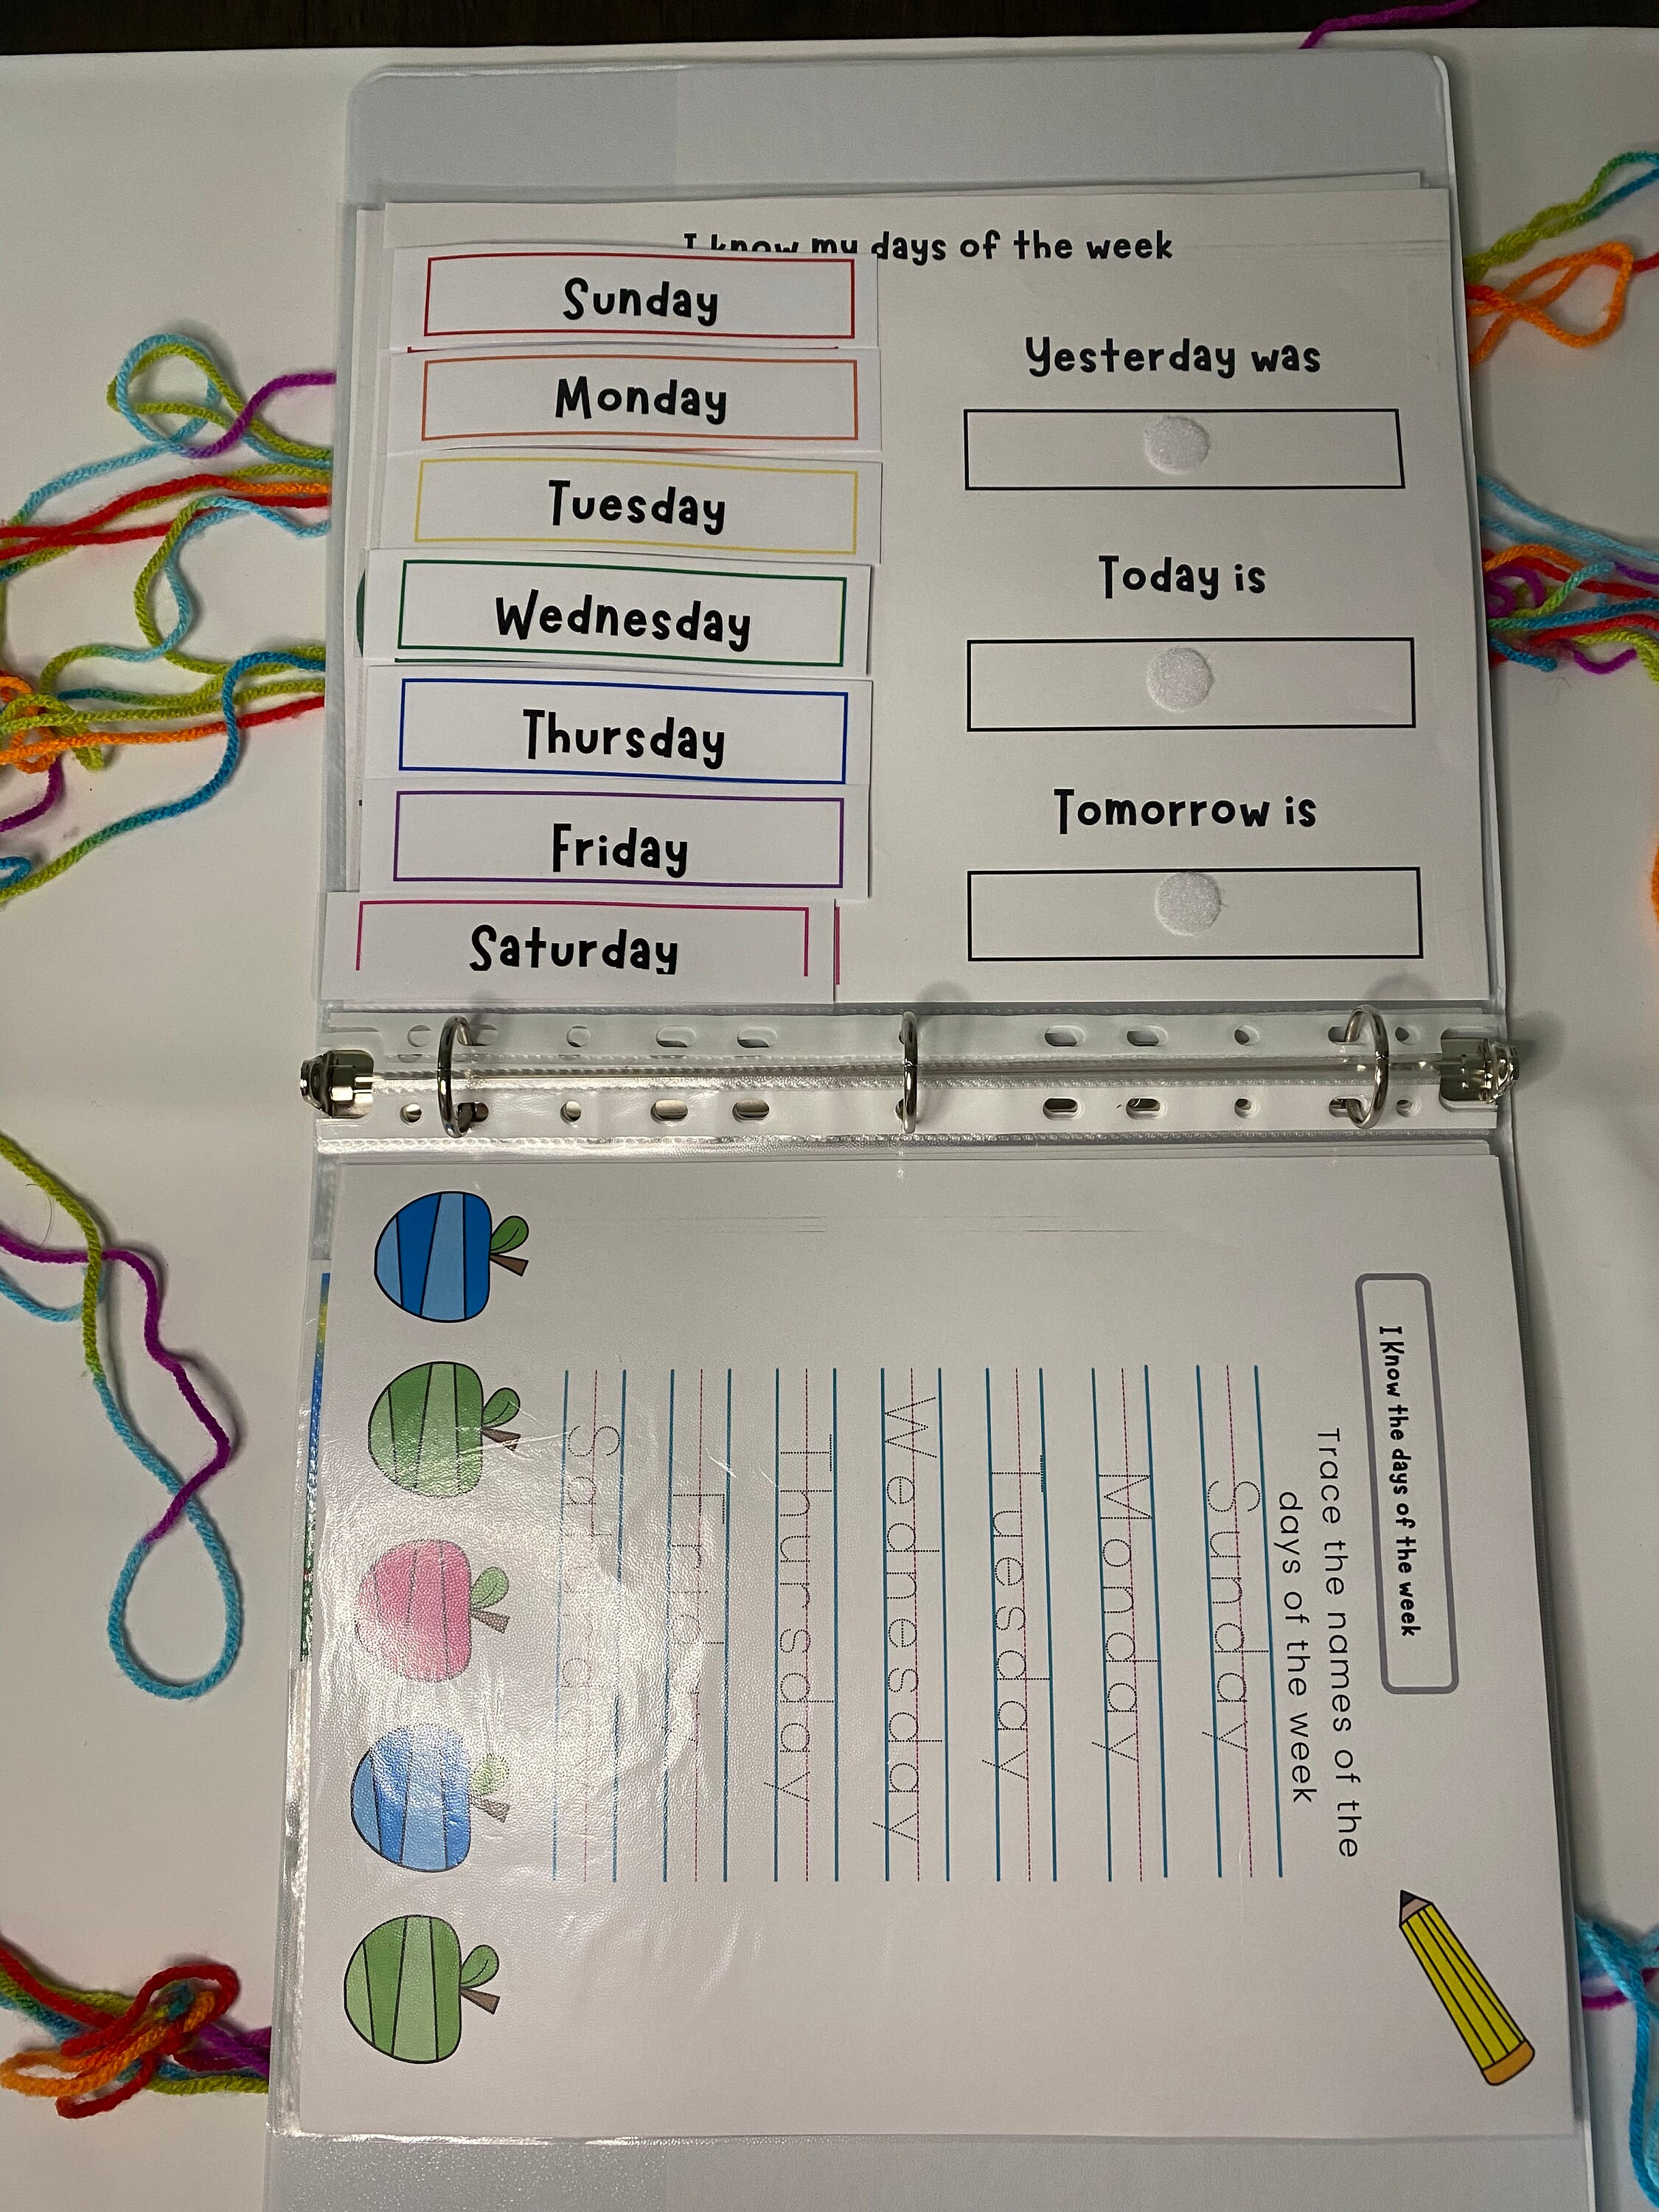 I know my days of the week
Sunday
Monday
Tuesday
Wednesday
Thursday
Friday
Saturday
Yesterday was
Today is
Tomorrow is
I Know the days of the week
Trace the names of the
days of the week
Sunday
Monday
Tuesday
Wednesday
Thursday
Friday
Saturday